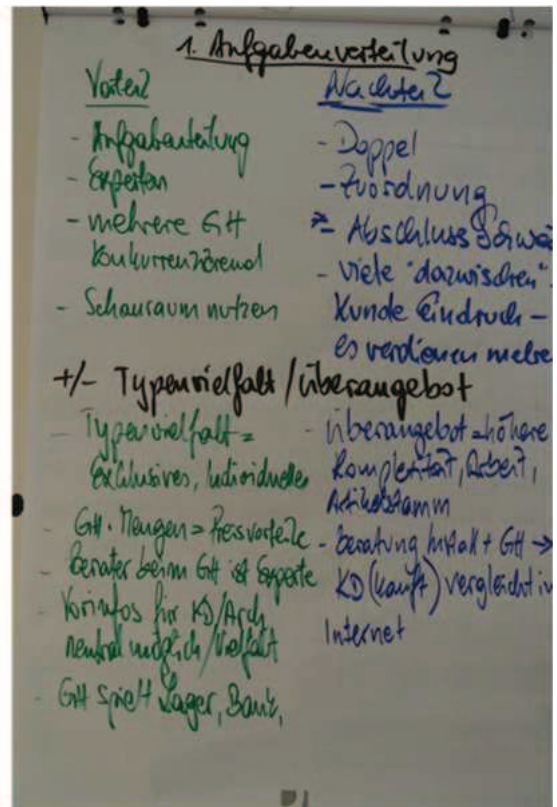 1. Aufgabenverteilung
Vorteil
- Aufgabenteilung
- Experten
- mehrere GH
konkurrenzierend
- Schauraum nutzen
Nachteil
- Doppel
- Zuordnung
- Abschluss
- viele "dazwischen"
Kunde Eindruck -
es verdienen mehre
+/- Typenvielfalt / Überangebot
- Typenvielfalt =
Exklusives, Individuelles
- GH. Mengen = Preisvorteile
- Berater beim GH ist Experte
- Vorinfos für KD/Arch
neutral möglich/Vielfalt
- GH spielt Lager, Bank,
- Überangebot = höhere
Komplexität, Arbeit,
Artikelstamm
- Beratung Install + GH →
KD (kauft) vergleicht i
Internet